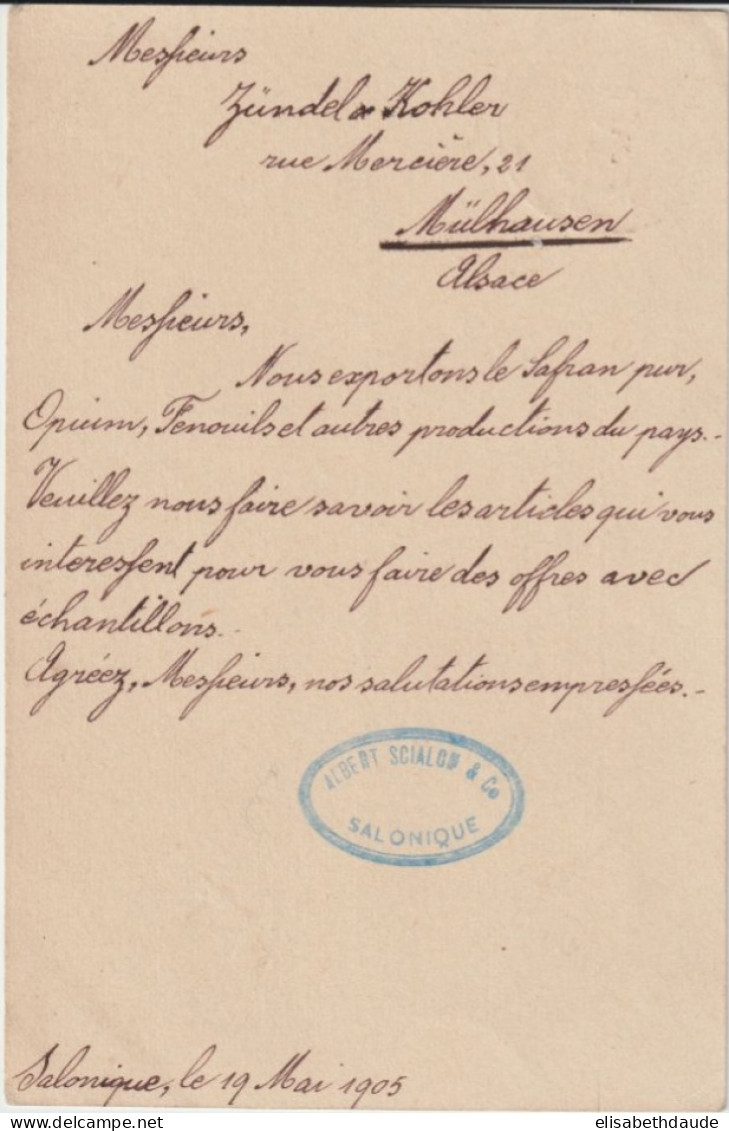 Messieurs
Zündel & Kohler
rue Mercière, 21
Mülhausen
Alsace
Messieurs,
Nous exportons le Safran pur,
Opium, Fenouils et autres productions du pays.-
Veuillez nous faire savoir les articles qui vous
interessent pour vous faire des offres avec
échantillons.-
Agréez, Messieurs, nos salutations empressées.-
ALBERT SCIALOM & Co
SALONIQUE
Salonique, le 19 Mai 1905
elisabethdaude